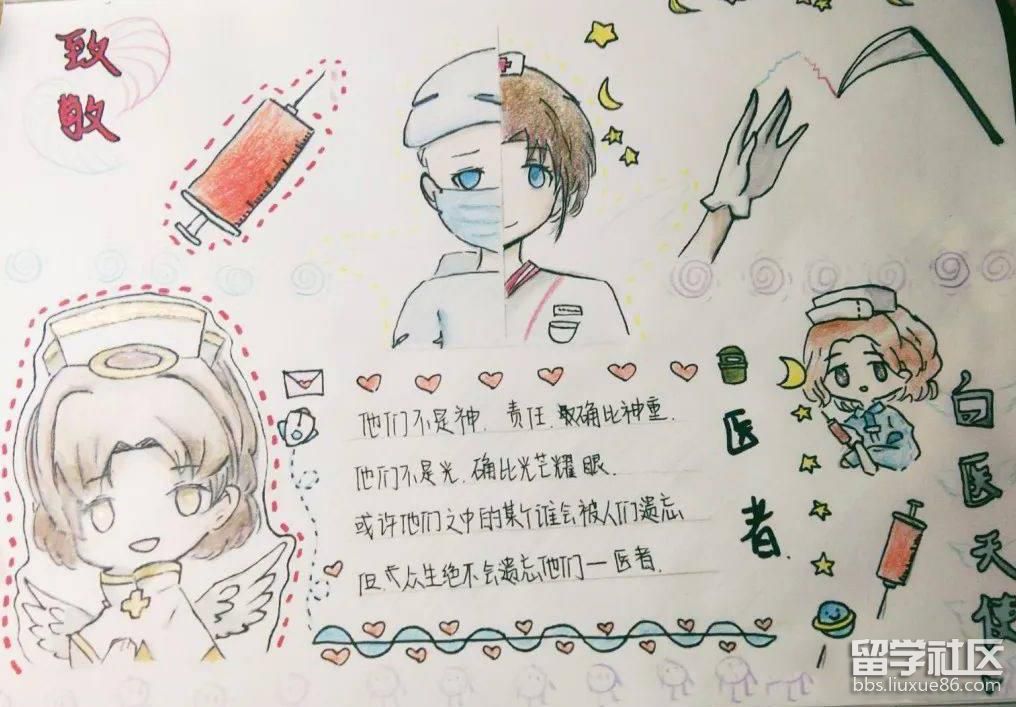 致敬
他们不是神.责任.确比神重.
他们不是光.确比光芒耀眼.
或许他们之中的某个谁会被人们遗忘
但众生绝不会遗忘他们一医者.
医者.
白医天使
留学社区
bbs.liuxue86.com